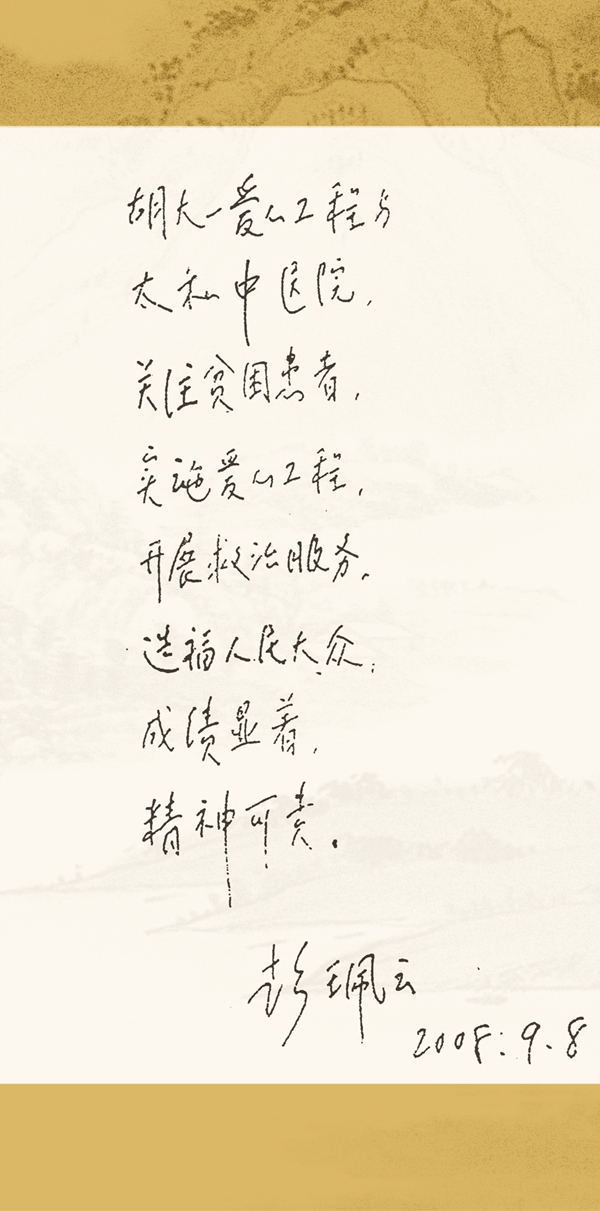 胡大一爱心工程与
太和中医院,
关注贫困患者,
实施爱心工程,
开展救治服务,
造福人民大众,
成绩显着,
精神可贵.
彭珮云
2008.9.8